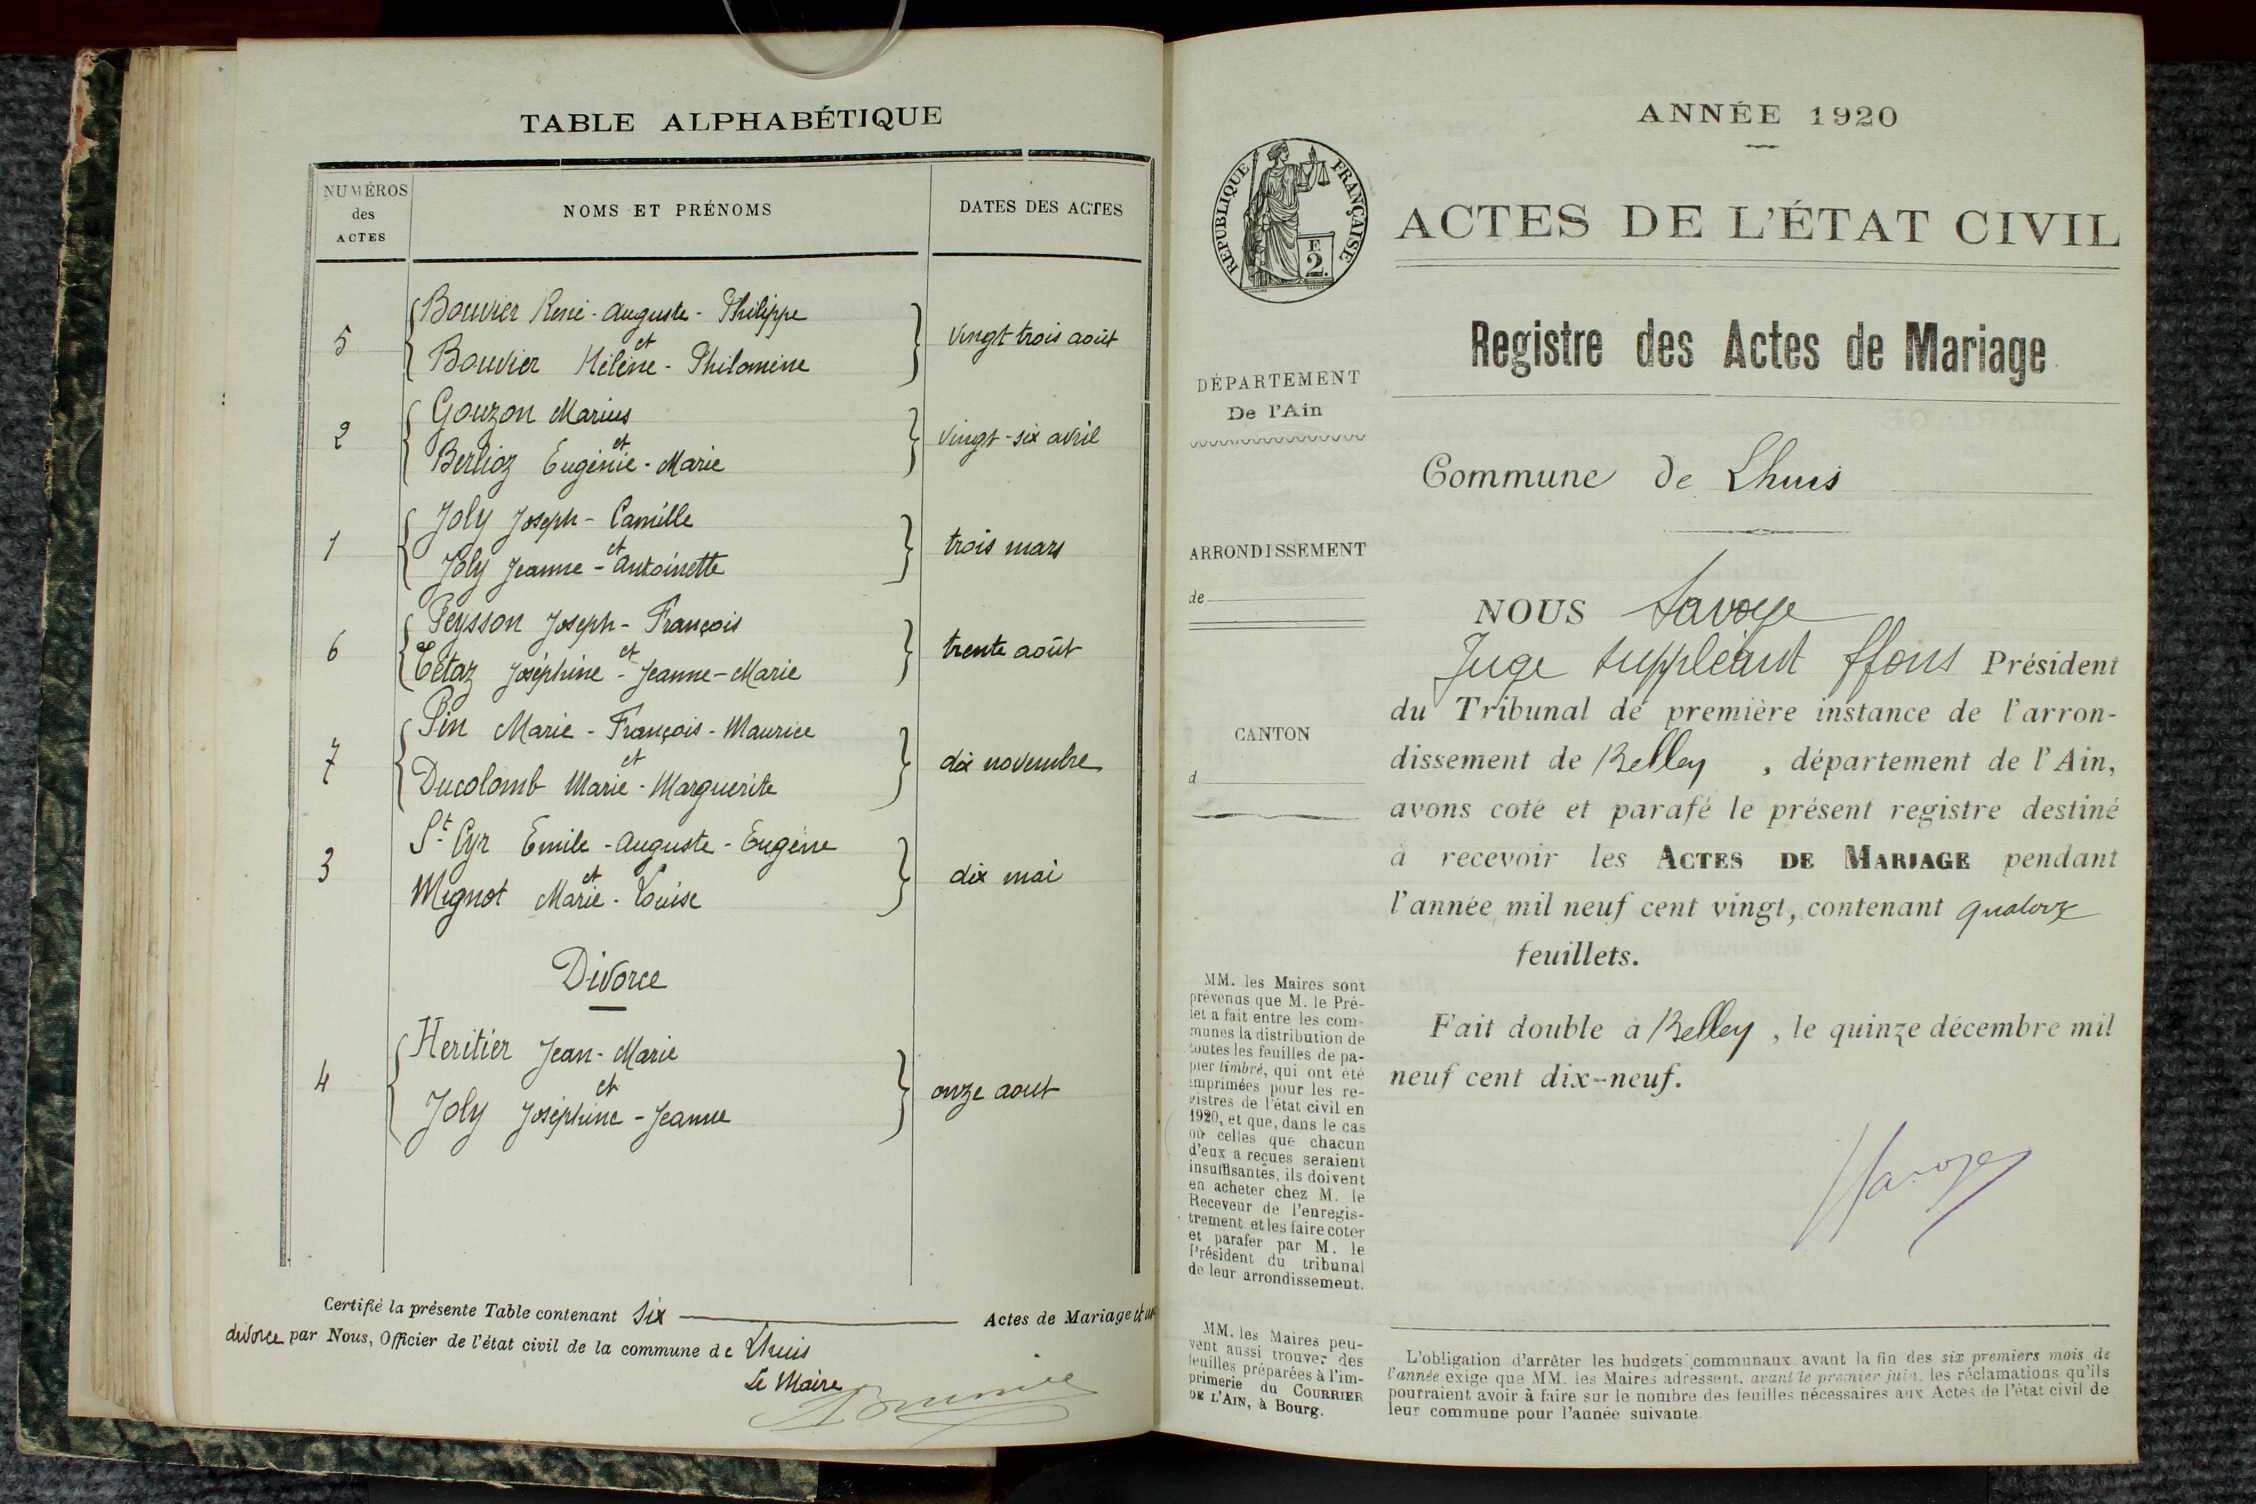 TABLE ALPHABÉTIQUE
NUMÉROS
des
ACTES
NOMS ET PRÉNOMS
DATES DES ACTES
5
Bouvier René - Auguste - Philippe
et
Bouvier Hélène - Philomène
vingt trois août
2
Gouzon Marius
et
Berlioz Eugénie - Marie
vingt - six avril
1
Joly Joseph - Camille
et
Joly Jeanne - Antoinette
trois mars
6
Peysson Joseph - François
et
Tétaz Joséphine - Jeanne - Marie
trente août
7
Pin Marie - François - Maurice
et
Ducolomb Marie - Marguerite
dix novembre
3
St. Cyr Emile - Auguste - Eugène
et
Mignot Marie - Louise
dix mai
Divorce
4
Heritier Jean - Marie
et
Joly Joséphine - Jeanne
onze aout
Certifié la présente Table contenant six Actes de Mariage et un
divorce par Nous, Officier de l'état civil de la commune de Lhuis
Le Maire
ANNÉE 1920
RÉPUBLIQUE FRANÇAISE
F.
2.
ACTES DE L'ÉTAT CIVIL
Registre des Actes de Mariage
DÉPARTEMENT
De l'Ain
Commune de Lhuis
ARRONDISSEMENT
de
CANTON
d
NOUS Savoye
Juge suppléant ffons Président
du Tribunal de première instance de l'arron-
dissement de Belley , département de l'Ain,
avons coté et parafé le présent registre destiné
à recevoir les ACTES DE MARIAGE pendant
l'année mil neuf cent vingt, contenant quatorze
feuillets.
Fait double à Belley , le quinze décembre mil
neuf cent dix-neuf.
Savoye
MM. les Maires sont
prévenus que M. le Pré-
fet a fait entre les com-
munes la distribution de
toutes les feuilles de pa-
pier timbré, qui ont été
imprimées pour les re-
gistres de l'état civil en
1920, et que, dans le cas
où celles que chacun
d'eux a reçues seraient
insuffisantes, ils doivent
en acheter chez M. le
Receveur de l'enregis-
trement et les faire coter
et parafer par M. le
Président du tribunal
de leur arrondissement.
MM. les Maires peu-
vent aussi trouver des
feuilles préparées à l'im-
primerie du COURRIER
DE L'AIN, à Bourg.
L'obligation d'arrêter les budgets communaux avant la fin des six premiers mois de
l'année exige que MM. les Maires adressent, avant le premier juin, les réclamations qu'ils
pourraient avoir à faire sur le nombre des feuilles nécessaires aux Actes de l'état civil de
leur commune pour l'année suivante